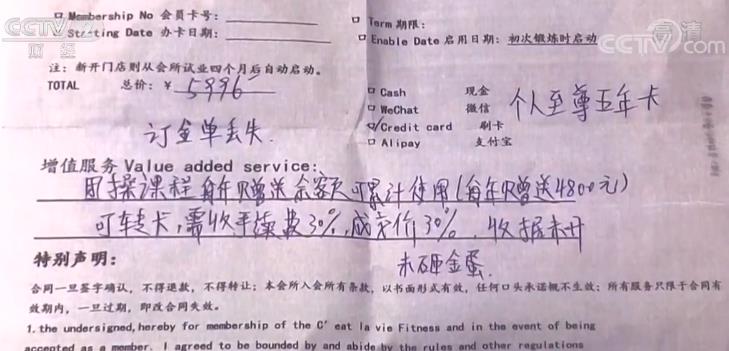 CCTV 2
财经
高清
CCTV.com
□ Membership No 会员卡号：
□ Term 期限：
□ Starting Date 办卡日期：
□ Enable Date 启用日期：初次锻炼时启动
注：新开门店则从会所试业四个月后自动启动。
TOTAL 总价：￥ 5996
□ Cash 现金
□ WeChat 微信
个人至尊五年卡
☑ Credit card 刷卡
□ Alipay 支付宝
订金单丢失.
增值服务 Value added service:
团操课程每年赠送余额可累计使用(每年赠送4800元)
可转卡,需收手续费30%,成交价30%. 收据未开
未砸金蛋.
特别声明：
合同一旦签字确认，不得退款，不得转让；本会所入会所有条款，以书面形式有效，任何口头承诺概不生效；所有服务只限于合同有
效期内，一旦过期，即改合同失效。
1. the undersigned, hereby for membership of the C' eat la vie Fitness and in the event of being
accepted as a member. I agreed to be bounded by and abide by the rules and other regulations